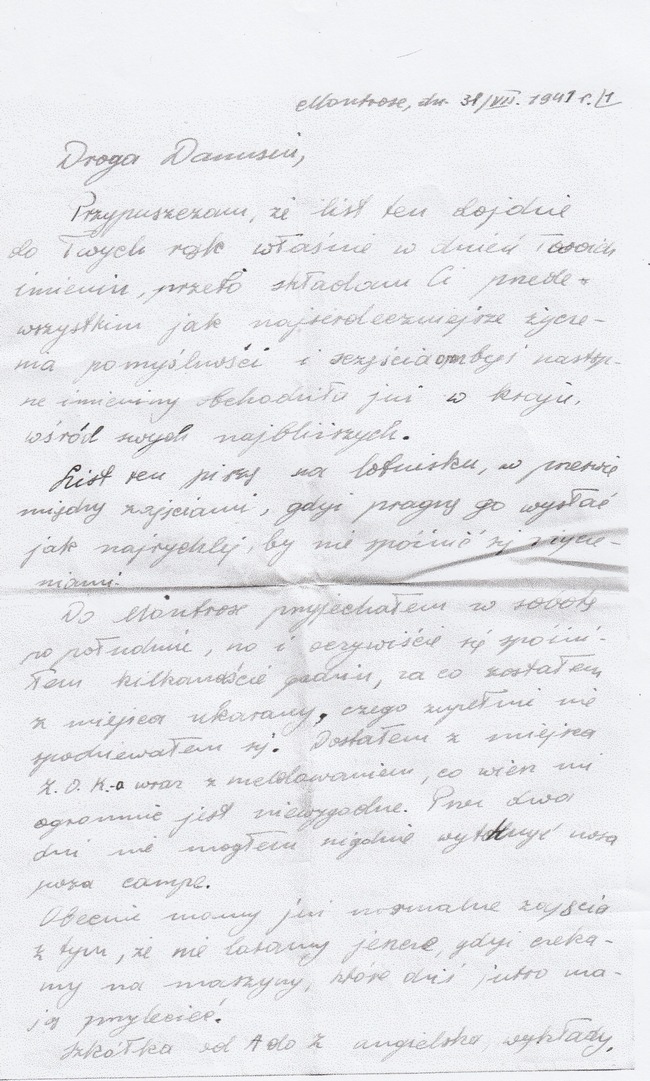 Montrose, dn. 31/VII. 1941 r. /1
Droga Danusiu,
Przypuszczam, że list ten dojdzie
do Twych rąk właśnie w dzień Twoich
imienin, przeto składam Ci przede-
wszystkim jak najserdeczniejsze życze-
nia pomyślności i szczęścia byś następ-
ne imieniny obchodziła już w kraju,
wśród swych najbliższych.
List ten piszę na lotnisku, w przerwie
między zajęciami, gdyż pragnę go wysłać
jak najrychlej, by nie spóźnić się z życze-
niami.
Do Montrose przyjechałem w sobotę
po południu, no i oczywiście się spóźni-
łem kilkanaście godzin, za co zostałem
z miejsca ukarany, czego zupełnie nie
spodziewałem się. Dostałem z miejsca
Z.O.K-a wraz z meldowaniem, co wiesz mi
ogromnie jest niewygodne. Przez dwa
dni nie mogłem nigdzie wytknąć nosa
poza campe.
Obecnie mamy już normalne zajęcia
z tym, że nie latamy jeszcze, gdyż czeka-
my na maszyny, które dziś jutro ma-
ją przylecieć.
Szkółka od A do Z angielska, wykłady,